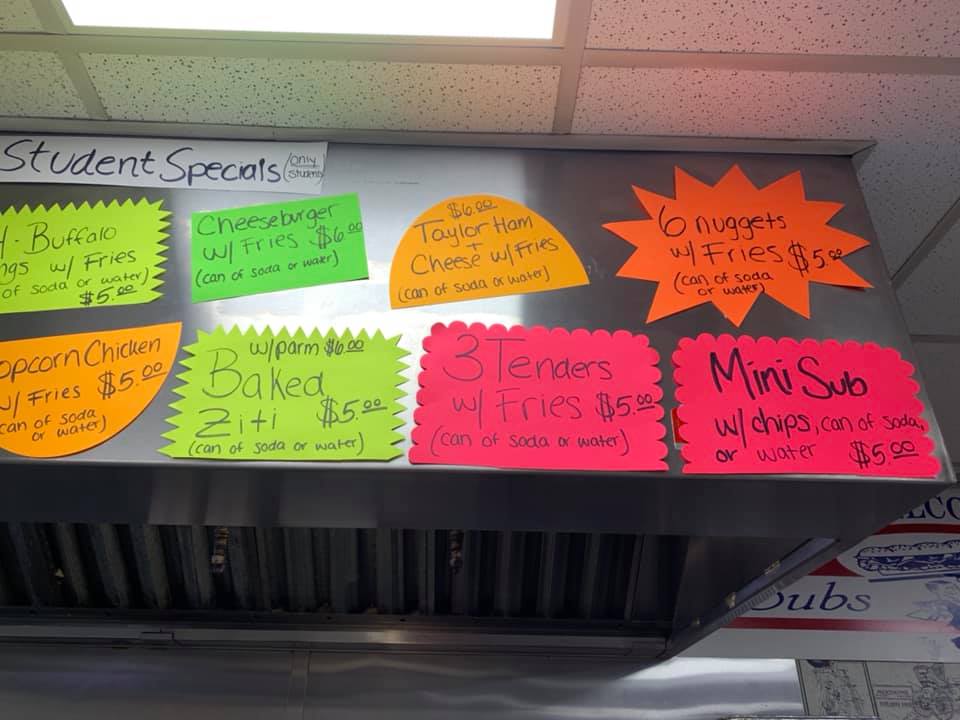 Student Specials (only students)
4. Buffalo
ngs w/ Fries
of soda or water)
$5.00
Cheeseburger
w/ Fries $6.00
(can of soda or water)
$6.00
Taylor Ham
+
Cheese w/ Fries
(can of soda or water)
6 nuggets
w/ Fries $5.00
(can of soda
or water)
opcorn Chicken
w/ Fries $5.00
can of soda
or water)
w/parm $6.00
Baked
Ziti $5.00
(can of soda or water)
3 Tenders
w/ Fries $5.00
(can of soda or water)
Mini Sub
w/ chips, can of soda,
or water $5.00
Subs